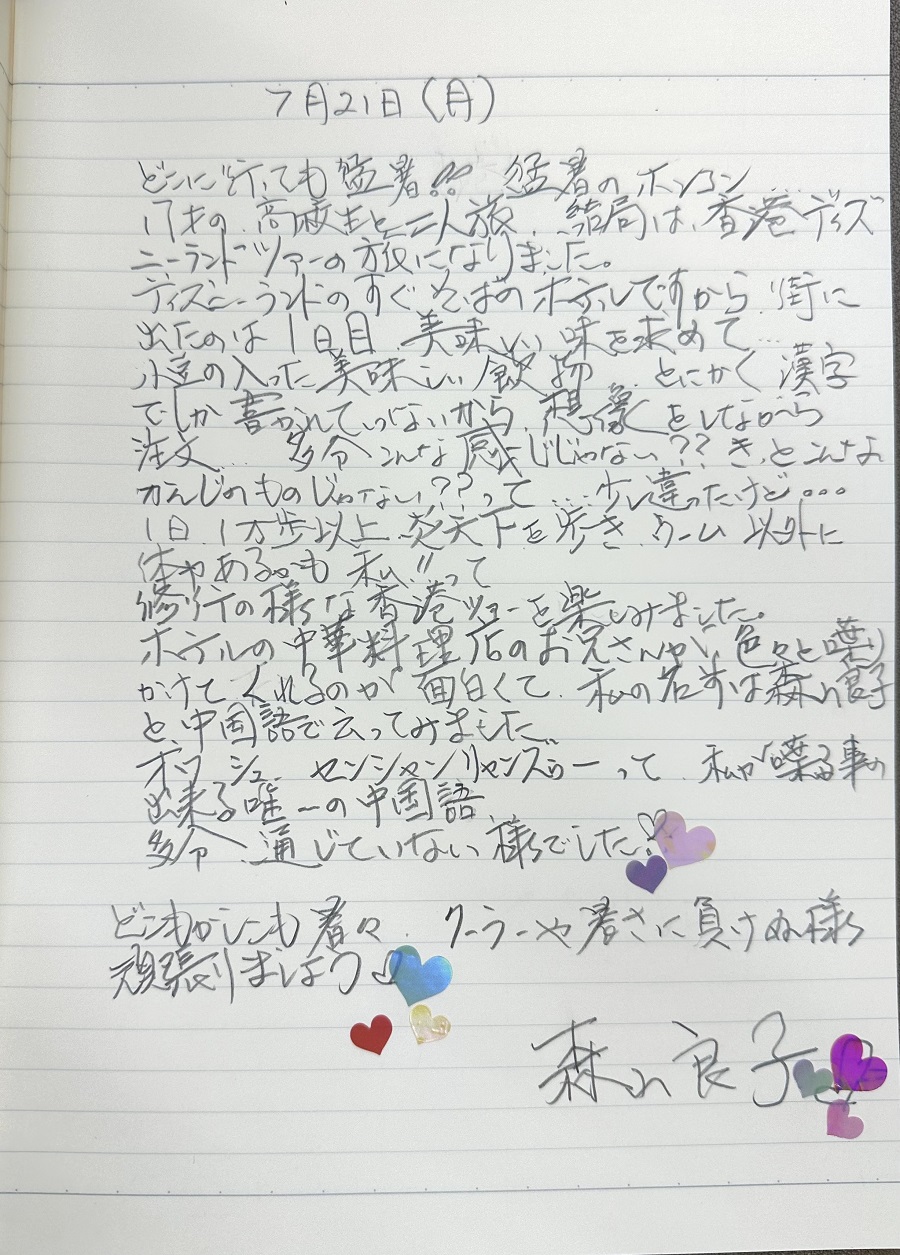 7月21日(月)
どこに行っても猛暑!! 猛暑のホンコン....
17才の高校生と二人旅. 結局は、香港ディズ
ニーランドツアーの旅になりました。
ディズニーランドのすぐそばのホテルですから、街に
出たのは1日目. 美味しい味を求めて...
小豆の入った美味しい飲物.... とにかく漢字
でしか書かれていないから、想像をしながら
注文.... 多分こんな感じじゃない?? きっとこんな
かんじのものじゃない??って....少し違ったけど...
1日、1万歩以上 炎天下を歩き、ゲーム以外に
体やあるかも 私!!って
修行の様な香港ツアーを楽しみました。
ホテルの中華料理店のお兄さんが、色々と喋り
かけてくれるのが面白くて、私の名前は森山良子
と、中国語で云ってみました
オワ シュ センシャンリャンズゥーって、私が喋る事の
出来る唯一の中国語
多分、通じていない様でした!
どこもかしこも暑々. クーラーや暑さに負けぬ様
頑張りましょう
森山良子